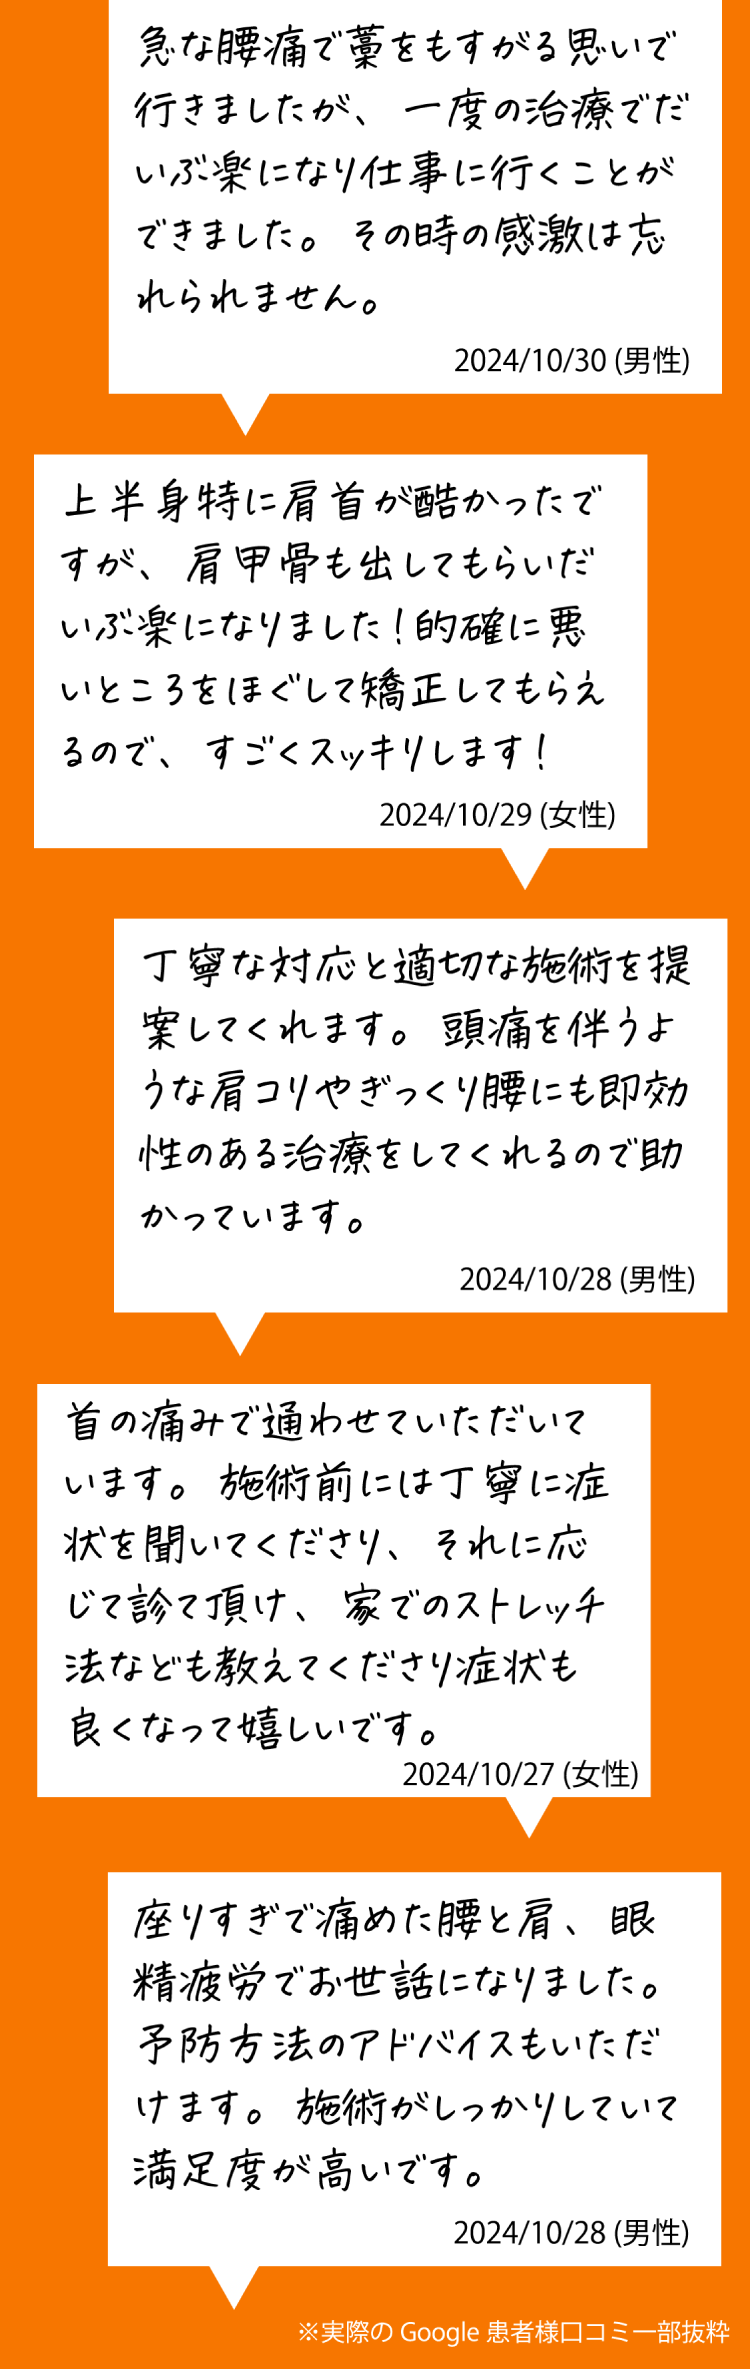 急な腰痛で藁をもすがる思いで
行きましたが、一度の治療でだ
いぶ楽になり仕事に行くことが
できました。その時の感激は忘
れられません。
2024/10/30 (男性)
上半身特に肩首が酷かったで
すが、肩甲骨も出してもらいだ
いぶ楽になりました！的確に悪
いところをほぐして矯正してもらえ
るので、すごくスッキリします！
2024/10/29 (女性)
丁寧な対応と適切な施術を提
案してくれます。頭痛を伴うよ
うな肩コリやぎっくり腰にも即効
性のある治療をしてくれるので助
かっています。
2024/10/28 (男性)
首の痛みで通わせていただいて
います。施術前には丁寧に症
状を聞いてくださり、それに応
じて診て頂け、家でのストレッチ
法なども教えてくださり症状も
良くなって嬉しいです。
2024/10/27 (女性)
座りすぎで痛めた腰と肩、眼
精疲労でお世話になりました。
予防方法のアドバイスもいただ
けます。施術がしっかりしていて
満足度が高いです。
2024/10/28 (男性)
※実際の Google 患者様口コミ一部抜粋